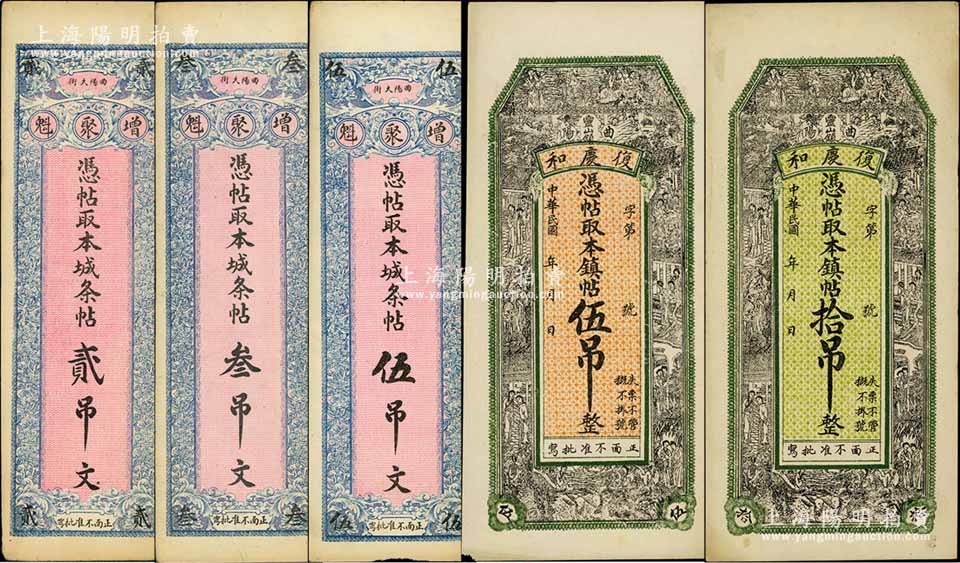 上海陽明拍賣
www.yangmingauction.com
貳 貳
曲陽大街
增聚魁
憑帖取本城条帖貳吊文
正面不准批寫
貳 貳
叁 叁
曲陽大街
增聚魁
憑帖取本城条帖叁吊文
正面不准批寫
叁 叁
伍 伍
曲陽大街
增聚魁
憑帖取本城条帖伍吊文
正面不准批寫
伍 伍
上海陽明拍賣
www.yangmingauction.com
曲陽
靈山鎮
復慶和
字第 號
憑帖取本鎮帖伍吊整
中華民國 年 月 日
失票不管
概不掛號
正面不准批寫
曲陽
靈山鎮
復慶和
字第 號
憑帖取本鎮帖拾吊整
中華民國 年 月 日
失票不管
概不掛號
正面不准批寫
上海陽明拍賣
www.yangmingauction.com